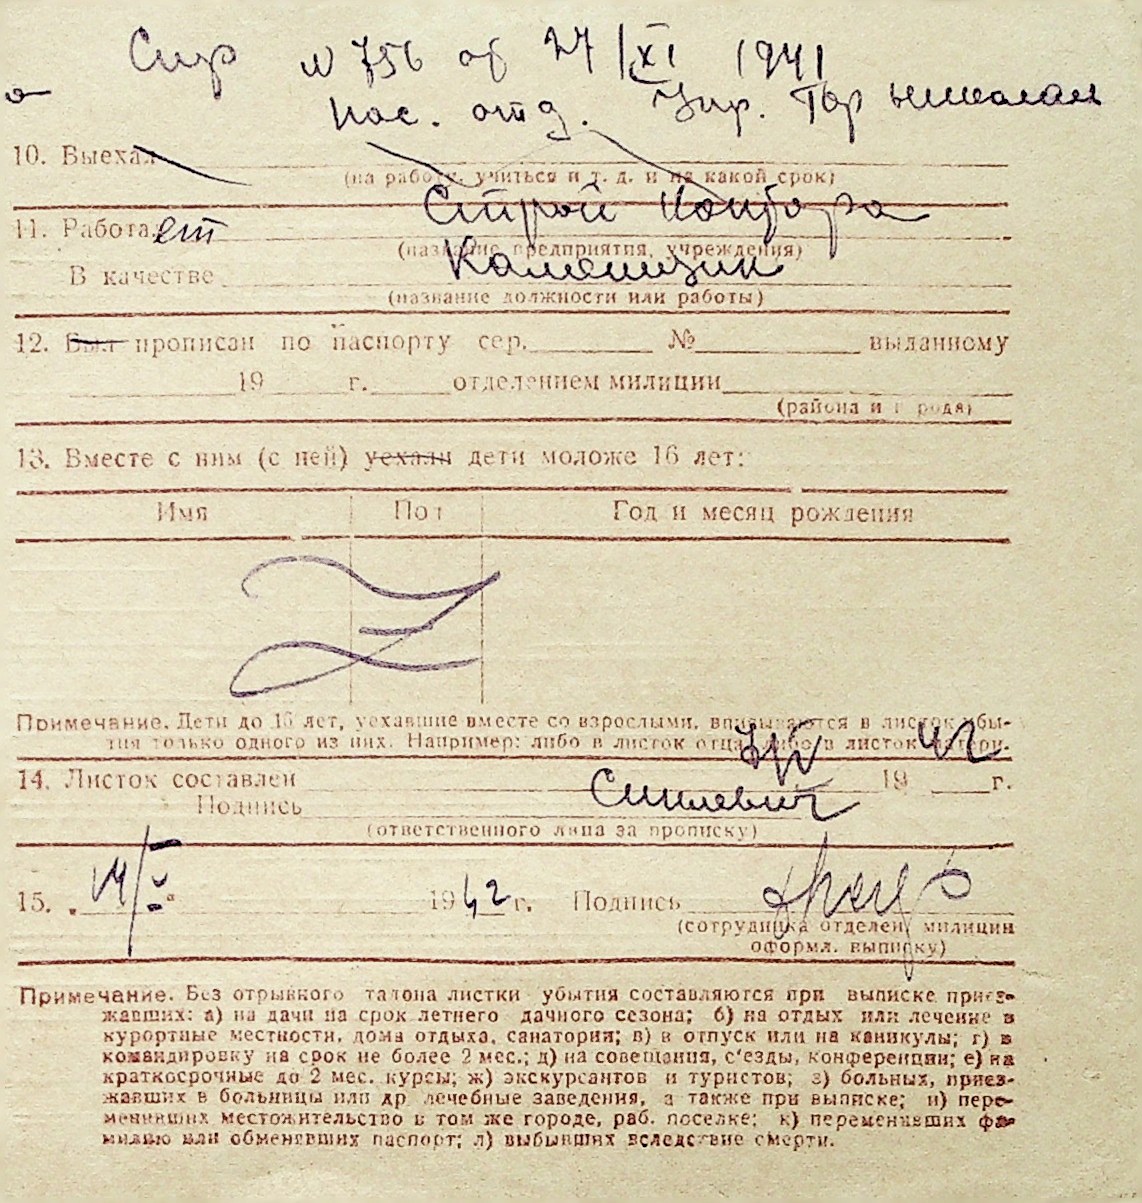 Спр № 756 от 27/XI 1941
Пас. отд. Упр. Гор
10. Выехал
(на работу, учиться и т. д. и на какой срок)
Строй Контора
11. Работает
(название предприятия, учреждения)
В качестве
(название должности или работы)
12. Был прописан по паспорту сер. № выданному
19 г. отделением милиции
(района и города)
13. Вместе с ним (с ней) уехали дети моложе 16 лет:
Имя Пол Год и месяц рождения
Z
Примечание. Дети до 16 лет, уехавшие вместе со взрослыми, вписываются в листок убы-
тия только одного из них. Например: либо в листок отца, либо в листок матери.
14. Листок составлен 19 42 г.
Подпись
(ответственного лица за прописку)
15. „14/V“ 1942 г. Подпись
(сотрудника отделен. милиции
оформл. выписку)
Примечание. Без отрывного талона листки убытия составляются при выписке приез-
жавших: а) на дачи на срок летнего дачного сезона; б) на отдых или лечение в
курортные местности, дома отдыха, санатории; в) в отпуск или на каникулы; г) в
командировку на срок не более 2 мес.; д) на совещания, с'езды, конференции; е) на
краткосрочные до 2 мес. курсы; ж) экскурсантов и туристов; з) больных, приез-
жавших в больницы или др. лечебные заведения, а также при выписке; и) пере-
менивших местожительство в том же городе, раб. поселке; к) переменивших фа-
милию или обменявших паспорт; л) выбывших вследствие смерти.